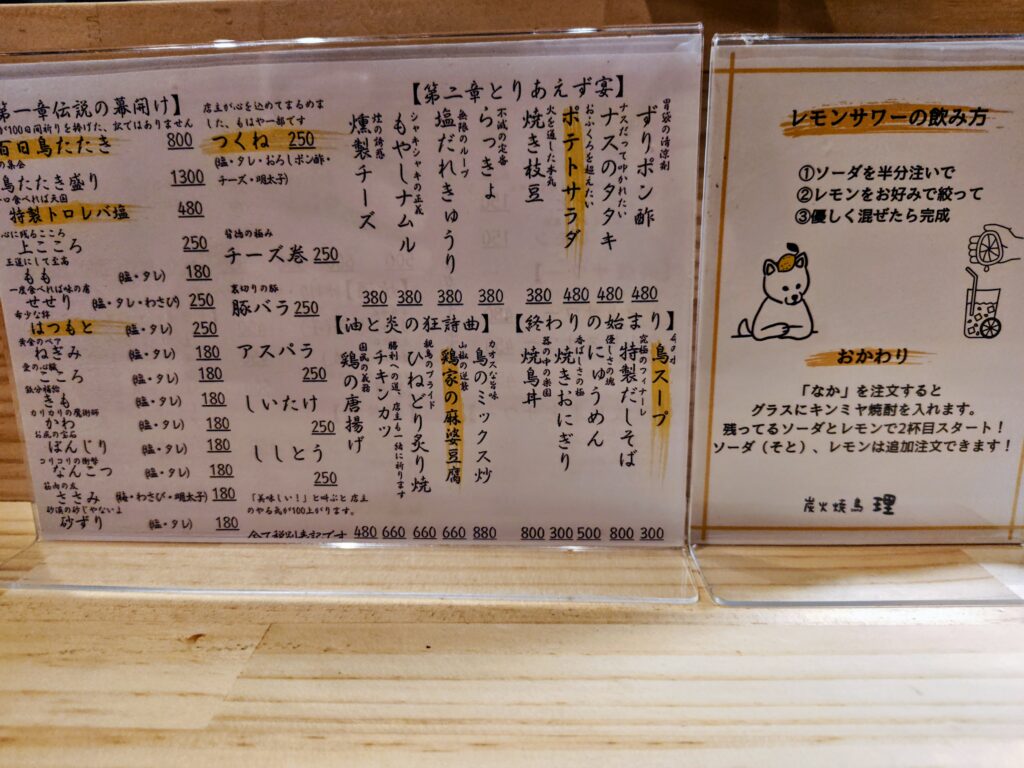 第一章伝説の幕開け】
が100日間祈りを捧げた、訳ではありません
百日鳥たたき 800
の集会
鳥たたき盛り 1300
一口食べれば天国
特製トロレバ塩 480
心に残るこころ
上こころ 250
王道にして至高
もも (塩・タレ) 180
一度食べれば味の虜
せせり (塩・タレ・わさび) 250
希少な絆
はつもと (塩・タレ) 250
黄金のペア
ねぎみ (塩・タレ) 180
愛の心臓
こころ (塩・タレ) 180
鉄分補給
きも (塩・タレ) 180
カリカリの魔術師
かわ (塩・タレ) 180
お尻の宝石
ぼんじり (塩・タレ) 180
コリコリの衝撃
なんこつ (塩・タレ) 180
筋肉の友
ささみ (梅・わさび・明太子) 180
砂漠の砂じゃないよ
砂ずり (塩・タレ) 180
店主が心を込めてまるめま
した、もはや一部です
つくね 250
(塩・タレ・おろしポン酢・
チーズ・明太子)
背徳の極み
チーズ巻 250
裏切りの豚
豚バラ 250
アスパラ
250
しいたけ
250
ししとう
250
「美味しい！」と叫ぶと 店主
のやる気が100上がります。
全て税別表記です
【第二章とりあえず宴】
胃袋の清涼剤
ずりポン酢 480
ナスだって叩かれたい
ナスのタタキ 480
おふくろを超えたい
ポテトサラダ 480
火を通した本丸
焼き枝豆 380
不滅の定番
らっきょ 380
無限のループ
塩だれきゅうり 380
シャキシャキの正義
もやしナムル 380
煙の誘惑
燻製チーズ 380
【油と炎の狂詩曲】
カオスな旨味
鳥のミックス炒 880
山椒の逆襲
鶏家の麻婆豆腐 660
親鳥のプライド
ひねどり炙り焼 660
勝利への道、店主も一緒に祈ります
チキンカツ 660
国民の義務
鶏の唐揚げ 480
【終わりの始まり】
鳥スープ 300
究極のフィナーレ
特製だしそば 800
優しさの塊
にゅうめん 500
香ばしさの極
焼きおにぎり 300
器の中の楽園
焼鳥丼 800
レモンサワーの飲み方
①ソーダを半分注いで
②レモンをお好みで絞って
③優しく混ぜたら完成
おかわり
「なか」を注文すると
グラスにキンミヤ焼酎を入れます。
残ってるソーダとレモンで2杯目スタート！
ソーダ（そと）、レモンは追加注文できます！
炭火焼鳥 理